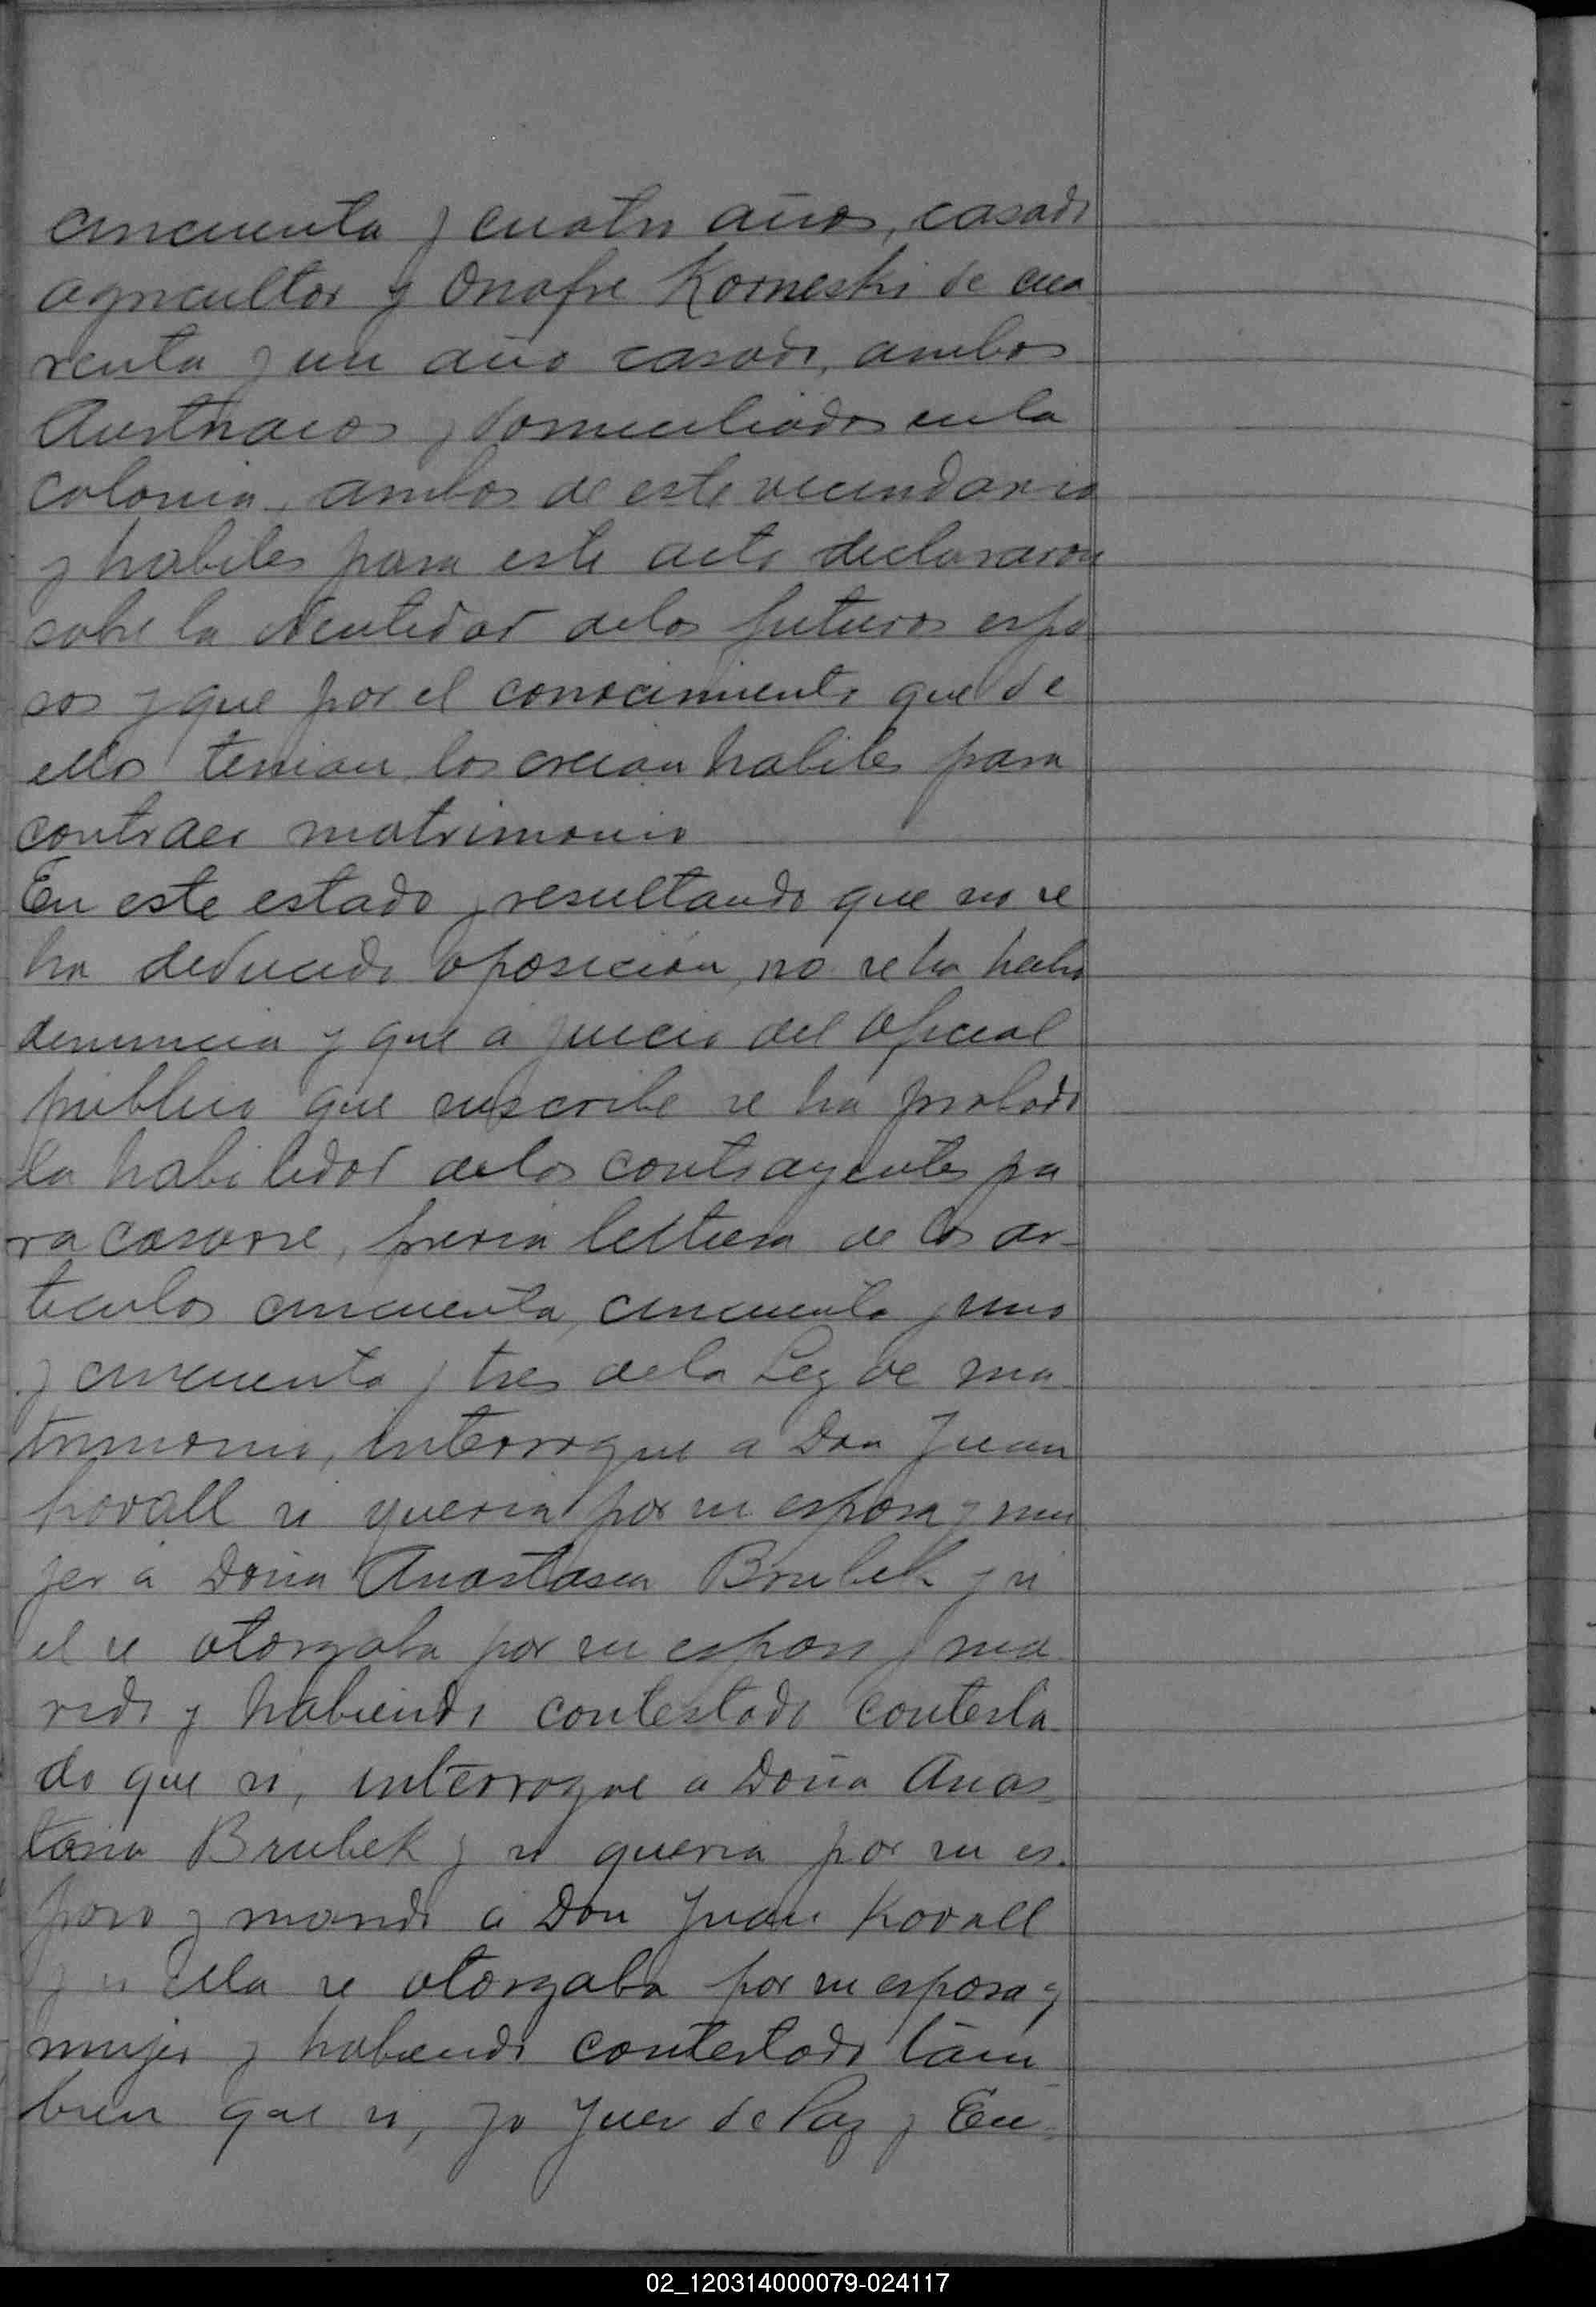 cincuenta y cuatro años, casado
agricultor y Onofre Korneski de cua
renta y un año casado, ambos
Austriacos y domiciliados en la
colonia, ambos de este vecindario
y habiles para este acto declararon
sobre la identidad delos futuros espo
sos y que por el conocimiento que de
ellos tenian, los creian habiles para
contraer matrimonio
En este estado y resultando que no se
ha deducido oposición, no se ha hecho
denuncia y que a juicio del Oficial
publico que suscribe se ha probado
la habilidad delos contrayentes pa
ra casarse, previa lectura de los ar-
ticulos cincuenta, cincuenta y uno
y cincuenta y tres dela Ley de ma
trimonio, interrogue a Don Juan
Kovall si queria por su esposa y mu
jer á Doña Anastasia Brubek y si
el se otorgaba por su esposo y ma
rido y habiendo contestado contesta
do que si, interrogue a Doña Anas
tasia Brubek y si queria por su es-
poso y marido á Don Juan Kovall
y si ella se otorgaba por su esposa y
mujer y habiendo contestado tam
bien que si, yo Juez de Paz y En-
02_120314000079-024117